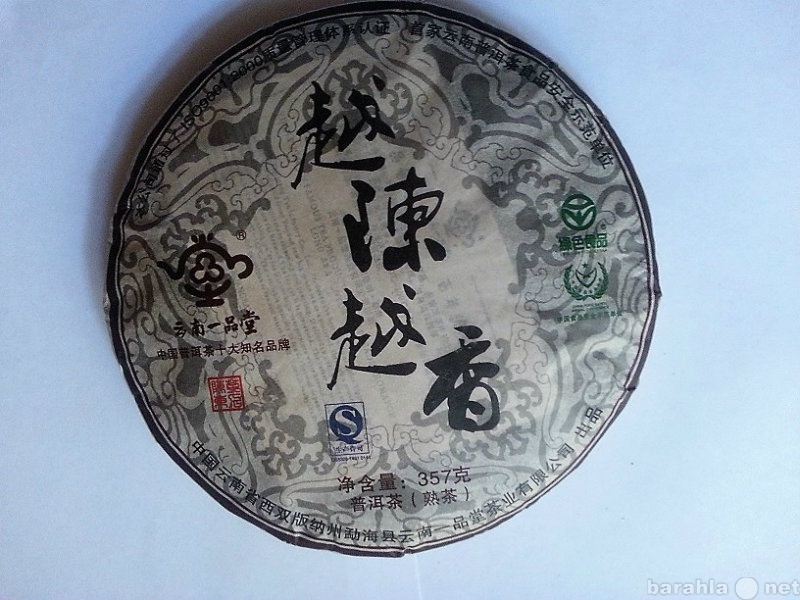 ISO9001:2000质量管理体系认证 首家云南普洱茶食品安全示范单位
越
陈
越
香
®
云南一品堂
中国普洱茶十大知名品牌
绿色食品
净含量：357克
普洱茶（熟茶）
中国云南省西双版纳州勐海县云南一品堂茶业有限公司 出品
barahla.net